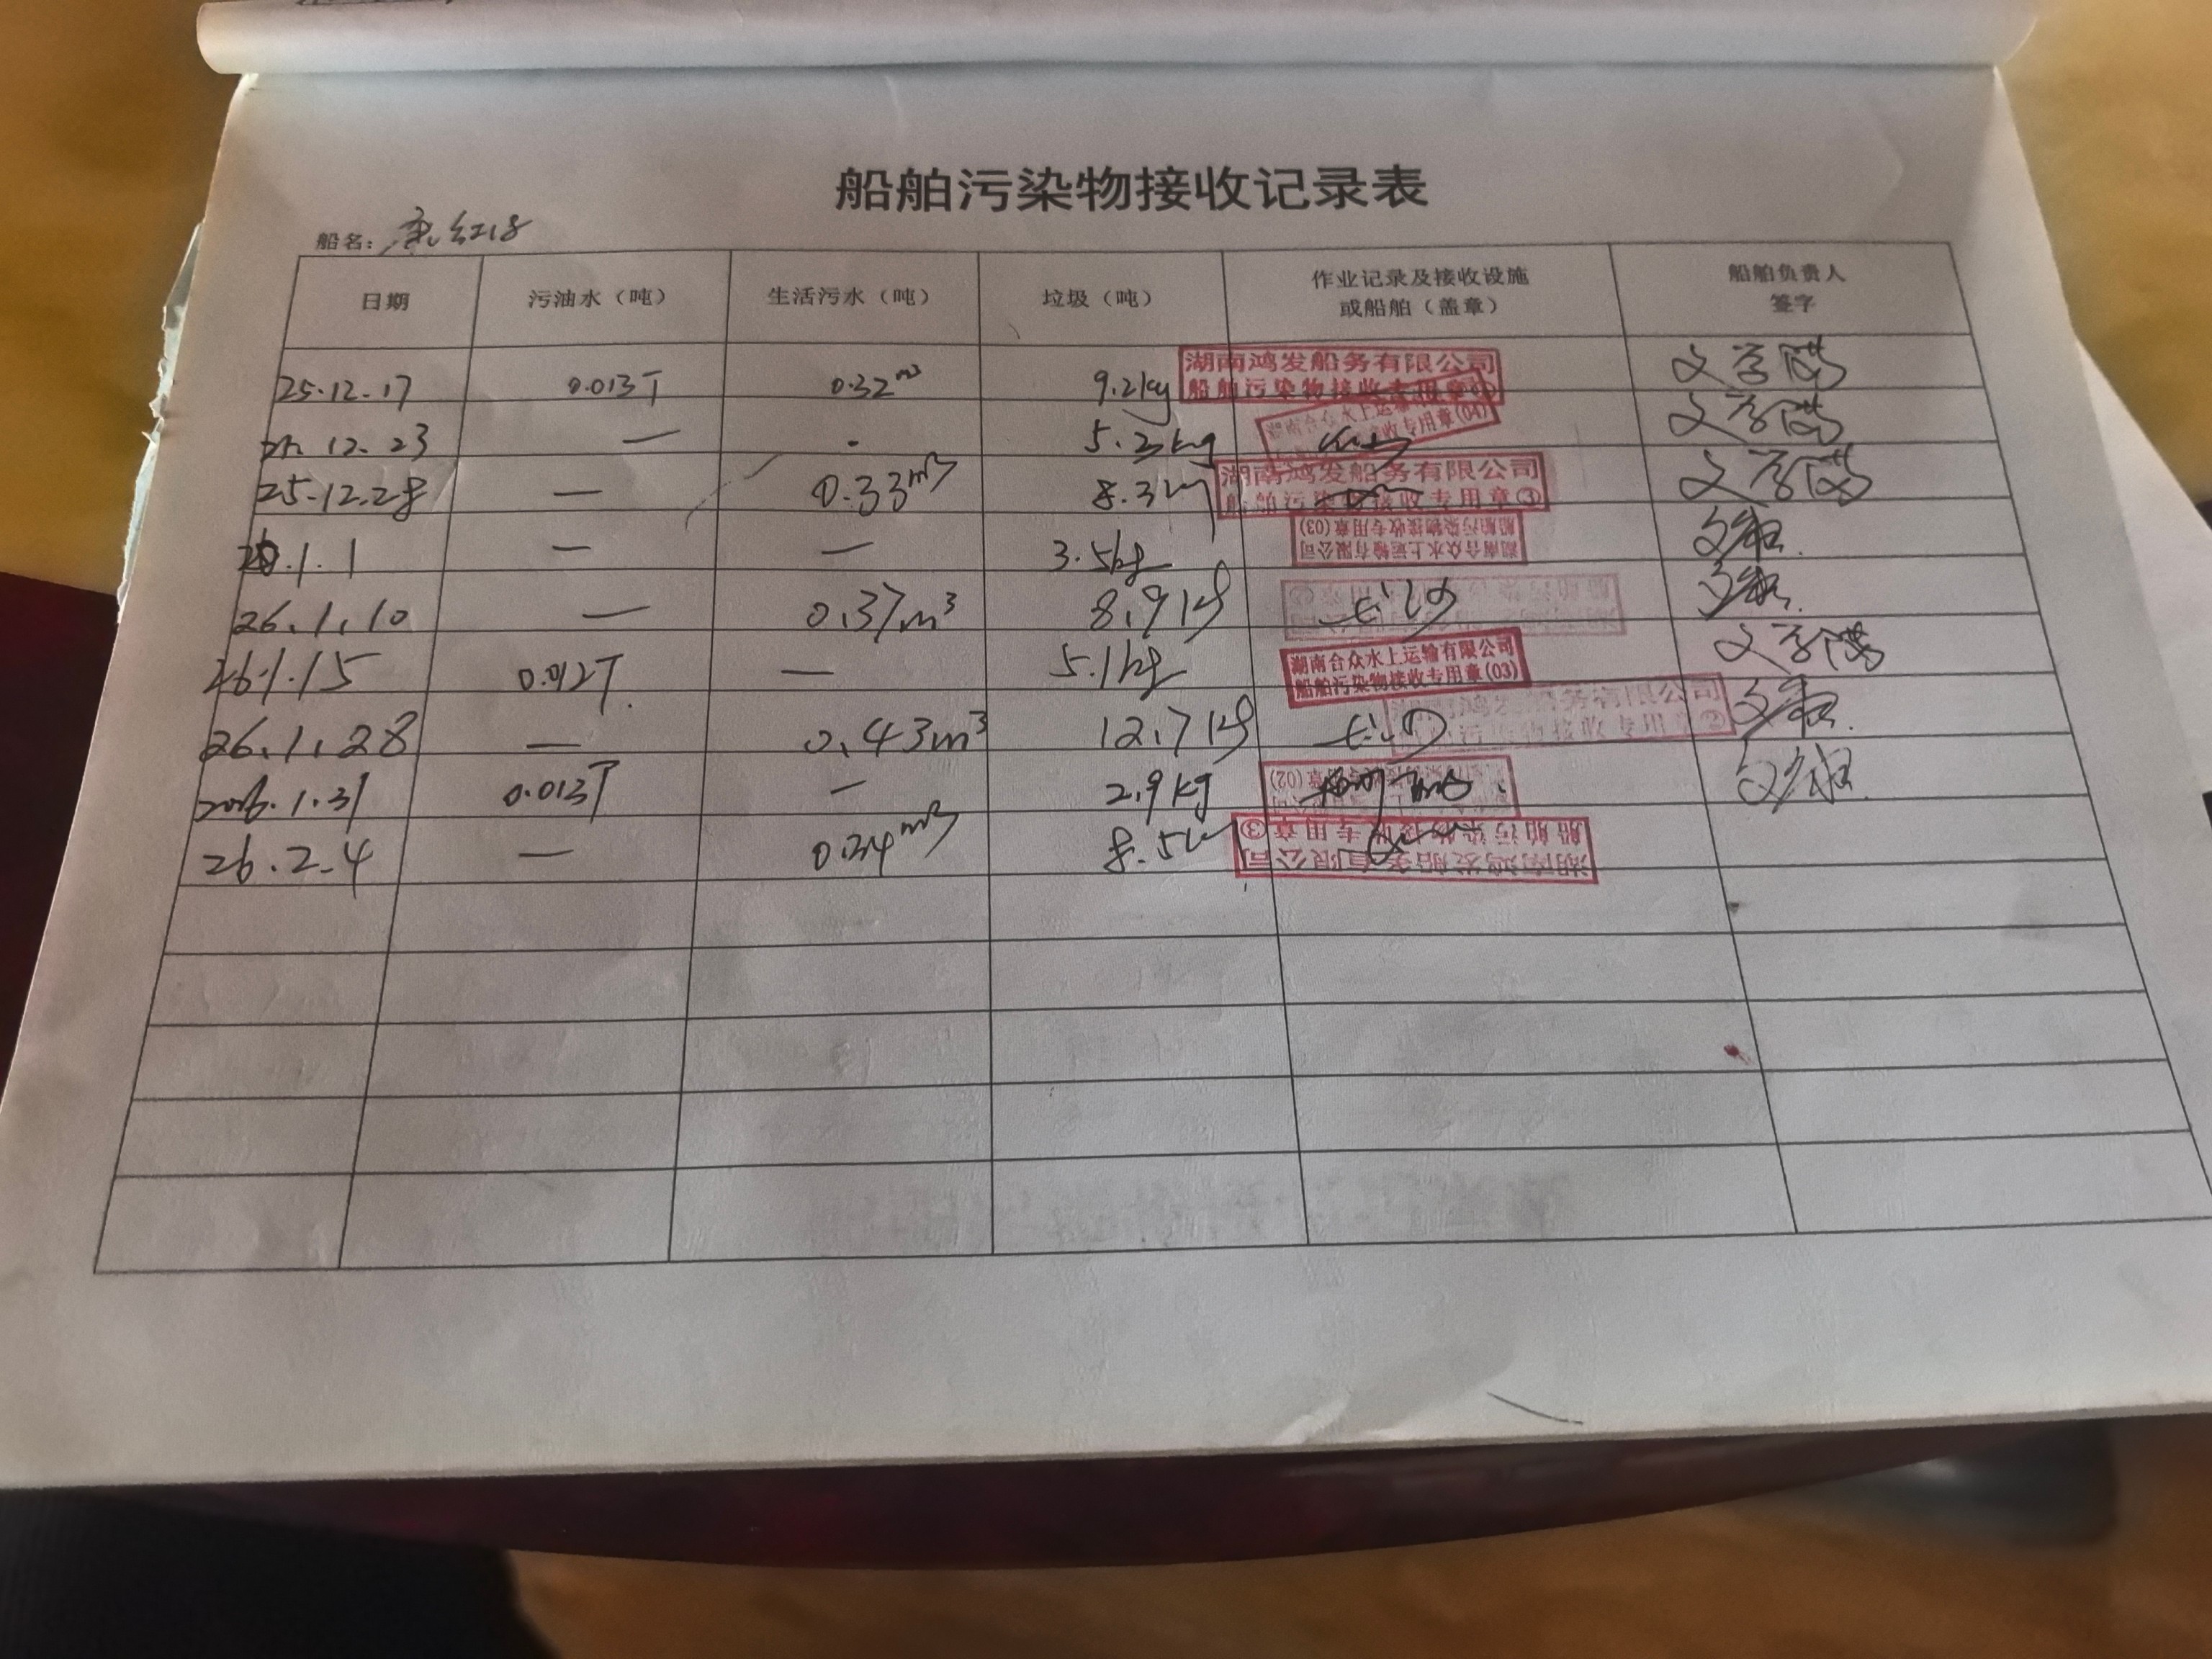 船舶污染物接收记录表
船名：
日期 污油水（吨） 生活污水（吨） 垃圾（吨） 作业记录及接收设施或船舶（盖章） 船舶负责人签字
25.12.17 0.013T 0.32m³ 9.2kg 湖南鸿发船务有限公司 船舶污染物接收专用章 文
12.23 — 5.3kg 湖南合众水上运输 接收专用章(04) 文
25.12.28 — 0.33m³ 8.3kg 湖南鸿发船务有限公司 船舶污染物接收专用章③ 文
1.1 — — 3.5kg 湖南合众水上运输有限公司 船舶污染物接收专用章(03) 文
26.1.10 — 0.37m³ 8.9kg 文
26.1.15 0.012T. — 5.1kg 湖南合众水上运输有限公司 船舶污染物接收专用章(03) 文
26.1.28 — 0.43m³ 12.7kg 湖南鸿发船务有限公司 污染物接收专用章② 文
2026.1.31 0.013T — 2.9kg 章(02) 文
26.2.4 — 0.34m³ 8.5kg 湖南鸿发船务有限公司 船舶污染物接收专用章③